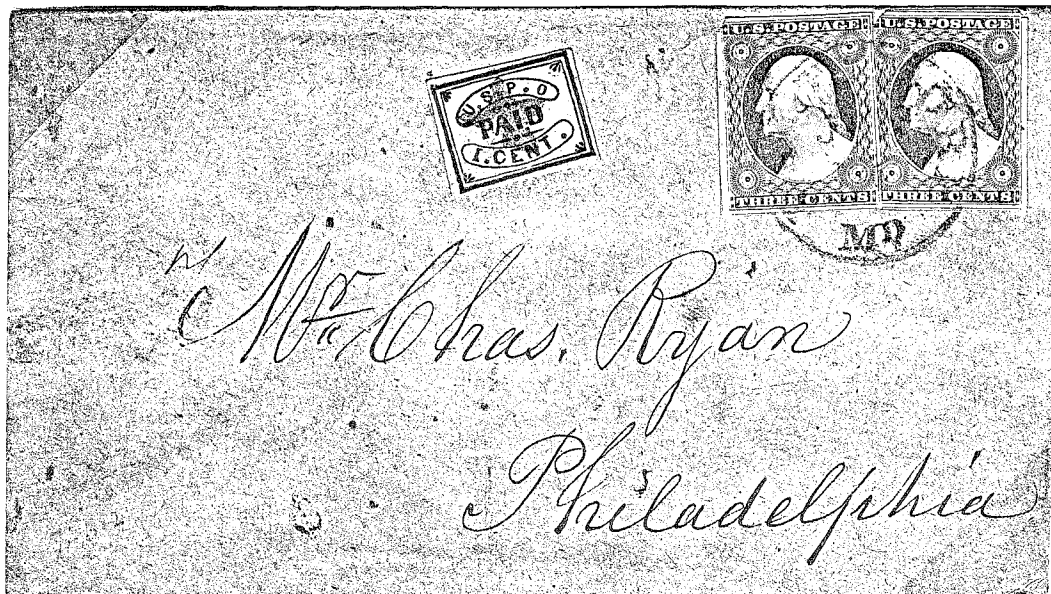 U.S.P.O
PAID
1.CENT.
U.S. POSTAGE
THREE CENTS
U.S. POSTAGE
THREE CENTS
Mr. Chas. Ryan
Philadelphia